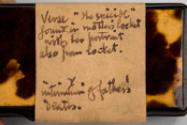 Verse "the suicide"
found in mother's locket
with his portrait
also from locket.
intimation of father's
Death.